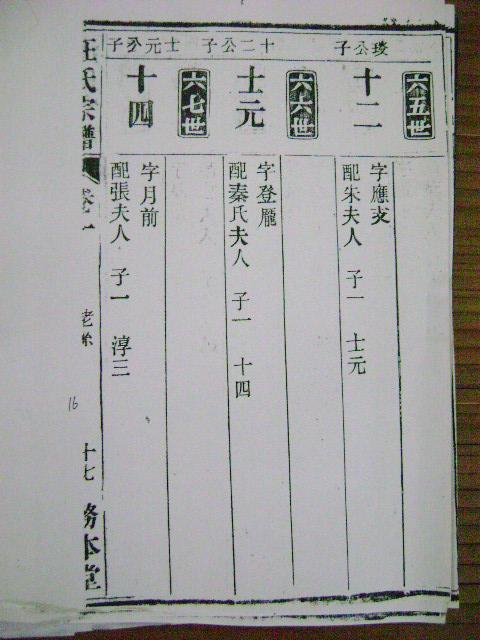 六五世
琰公子
十二
字應支
配朱夫人 子一 士元
六六世
十二公子
士元
字登龐
配秦氏夫人 子一 十四
六七世
士元公子
十四
字月前
配張夫人 子一 淳三
汪氏宗譜 卷一 老 十七 務本堂
16